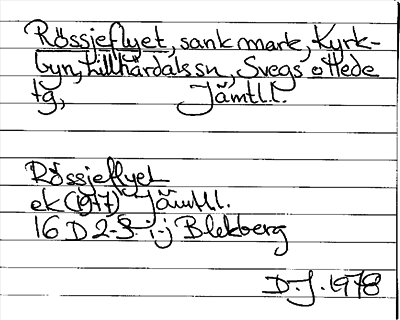 Rössjeflyet, sank mark, Kyrk-
byn, Lillhärdals sn, Svegs o Hede
tg, Jämtl.l.
Rössjeflyet
ek (1977) Jämtl.l.
16 D 2-3 i-j Blekberg
D.J. 1978